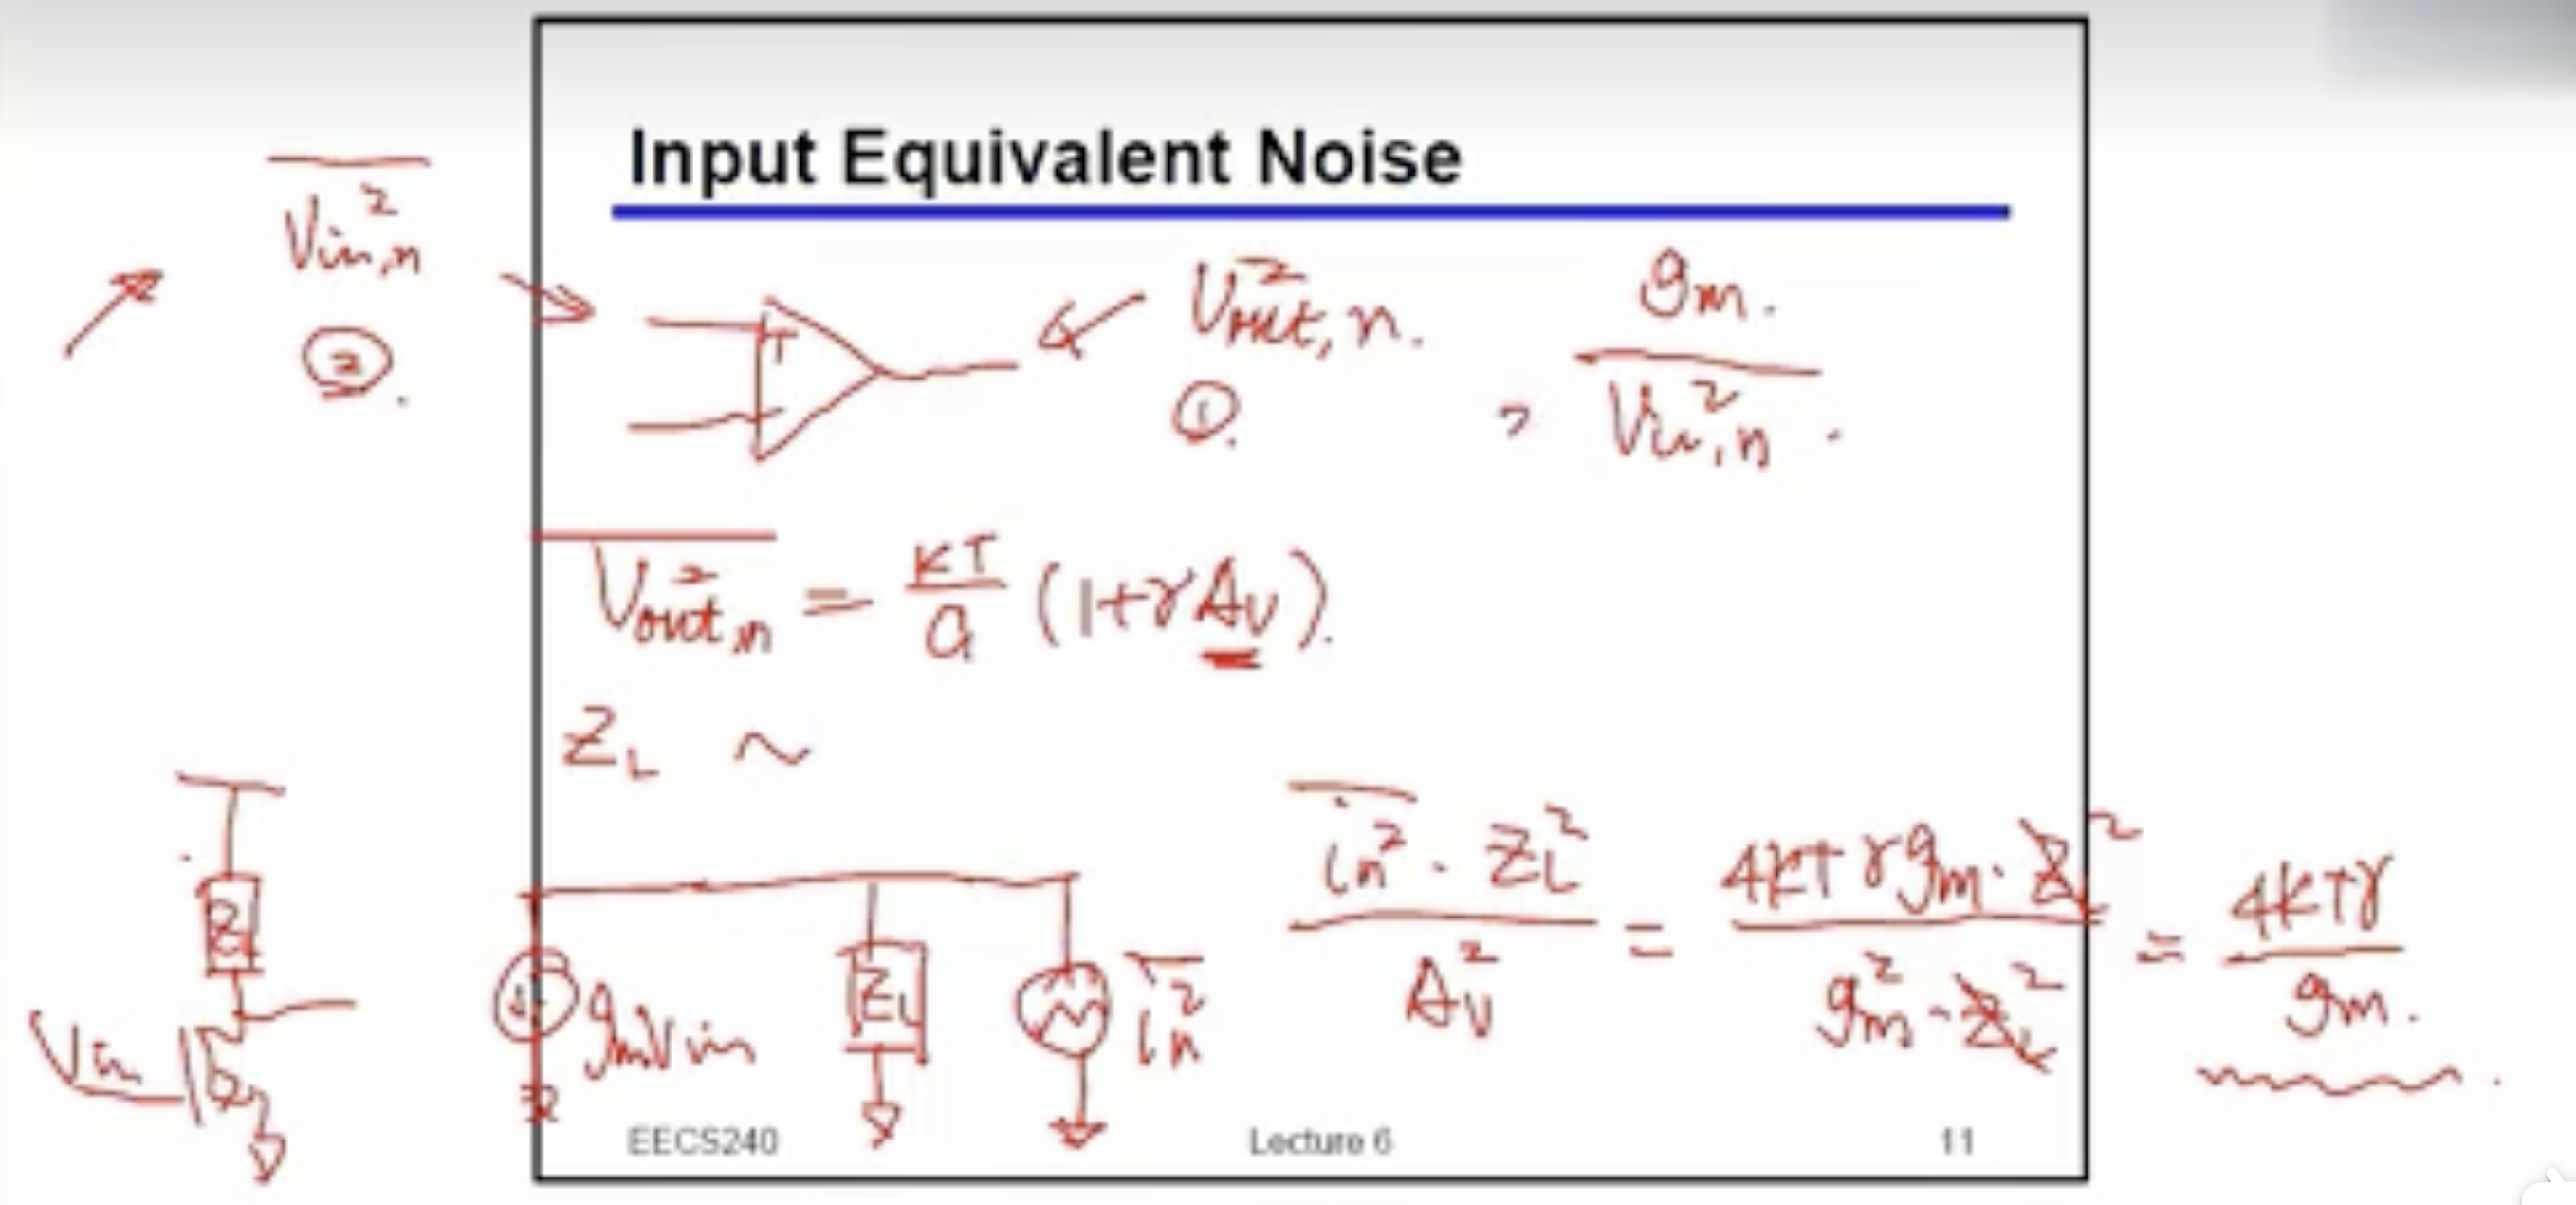 Input Equivalent Noise
Vin,n²
②.
Vout,n².
①.
, gm. / Vin,n².
Vout,n² = KT/a (1+γAv).
ZL ~
Vin
gmVin
ZL
in²
in² · ZL² / Av² = 4kTγgm · ZL² / gm² · ZL² = 4kTγ / gm.
EECS240
Lecture 6
11